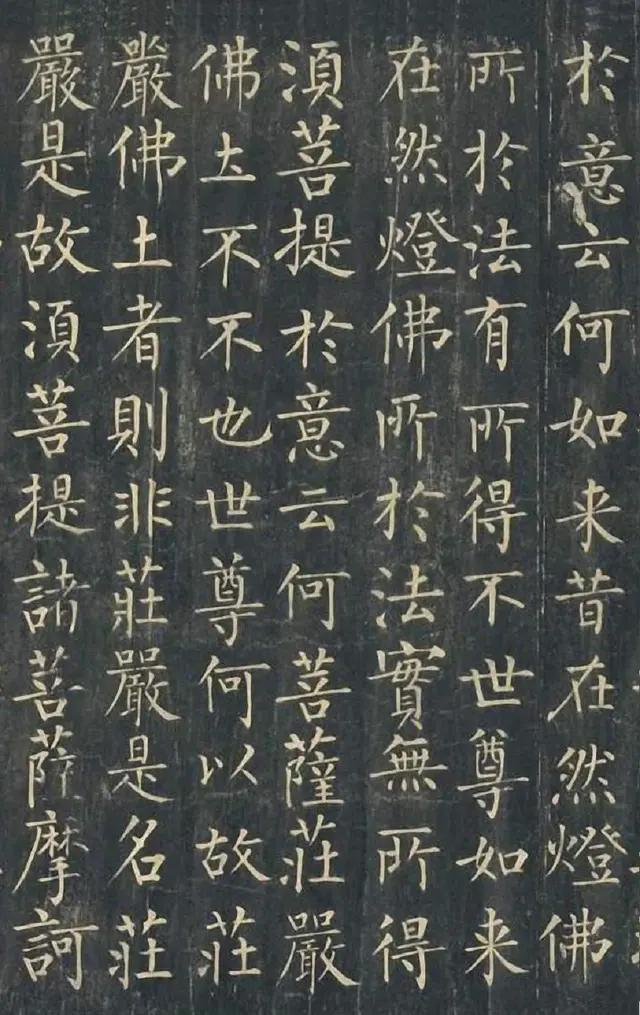 於意云何如来昔在然燈佛
所於法有所得不世尊如来
在然燈佛所於法實無所得
湏菩提於意云何菩薩莊嚴
佛土不不也世尊何以故莊
嚴佛土者則非莊嚴是名莊
嚴是故湏菩提諸菩薩摩訶